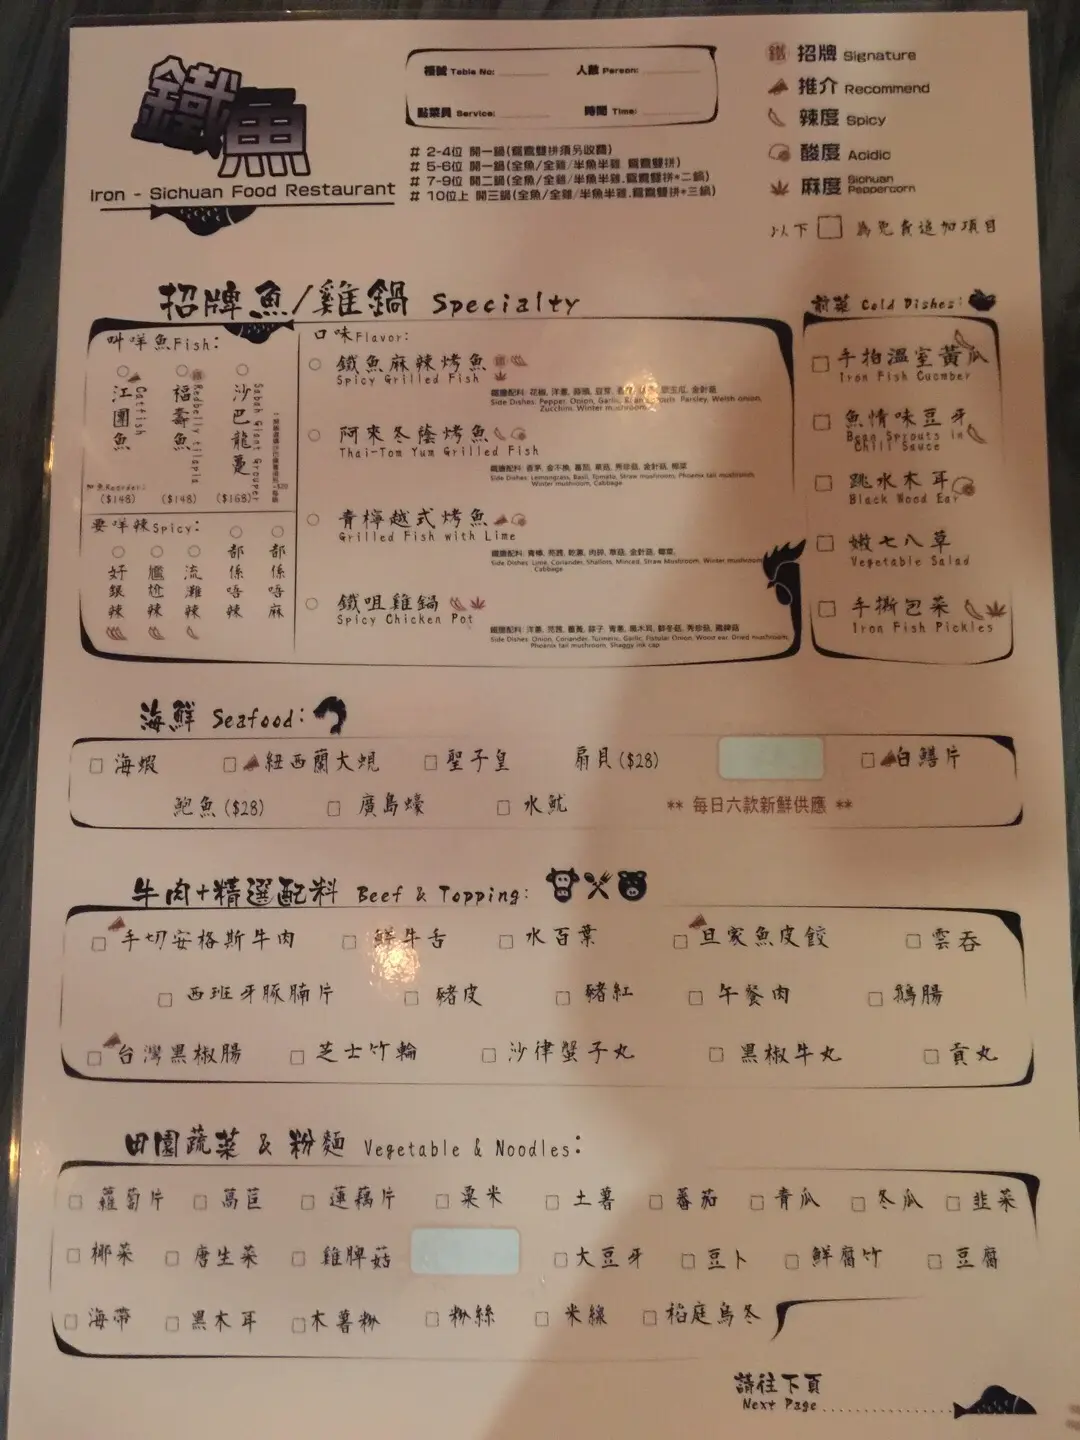 鐵魚
Iron - Sichuan Food Restaurant
檯號 Table No: 人數 Person:
點菜員 Service: 時間 Time:
# 2-4位 開一鍋(鴛鴦雙拼須另收費)
# 5-6位 開一鍋(全魚/全雞/半魚半雞 鴛鴦雙拼)
# 7-9位 開二鍋(全魚/全雞/半魚半雞.鴛鴦雙拼*二鍋)
# 10位上 開三鍋(全魚/全雞/半魚半雞.鴛鴦雙拼*三鍋)
鐵 招牌 Signature
推介 Recommend
辣度 Spicy
酸度 Acidic
麻度 Sichuan Peppercorn
以下 為免費追加項目
招牌魚/雞鍋 Specialty
叫咩魚Fish:
江團魚 Catfish
($148)
福壽魚 Redbelly tilapia
($148)
沙巴龍躉 Sabah Giant Grouper
($168)
要咩辣Spicy:
好銀辣
尷尬辣
流灘辣
都係唔辣
都係唔麻
口味Flavor:
鐵魚麻辣烤魚
Spicy Grilled Fish
Side Dishes: Pepper, Onion, Garlic, Parsley, Welsh onion,
Zucchini, Winter mushroom
阿來冬蔭烤魚
Thai-Tom Yum Grilled Fish
鐵膽配料: 香茅, 金不換, 蕃茄, 草菇, 秀珍菇, 金針菇, 椰菜
Side Dishes: Lemongrass, Basil, Tomato, Straw mushroom, Phoenix tail mushroom,
Winter mushroom, Cabbage
青檸越式烤魚
Grilled Fish with Lime
鐵膽配料: 青檸, 芫茜, 乾蔥, 肉碎, 草菇, 金針菇, 椰菜,
Side Dishes: Lime, Coriander, Shallots, Minced, Straw Mushroom, Winter mushroom
Cabbage
鐵咀雞鍋
Spicy Chicken Pot
Side Dishes: Onion, Coriander, Turmeric, Garlic, Fistular Onion, Wood ear, Dried mushroom,
Phoenix tail mushroom, Shaggy ink cap
前菜 Cold Dishes:
手拍溫室黃瓜
Iron Fish Cucmber
魚情味豆牙
Bean Sprouts in
Chili Sauce
跳水木耳
Black Wood Ear
嫩七八草
Vegetable Salad
手撕包菜
Iron Fish Pickles
海鮮 Seafood:
海蝦 紐西蘭大蜆 聖子皇 扇貝($28) 白鱔片
鮑魚($28) 廣島蠔 水魷 ** 每日六款新鮮供應 **
牛肉+精選配料 Beef & Topping:
手切安格斯牛肉 鮮牛舌 水百葉 旦家魚皮餃 雲吞
西班牙豚腩片 豬皮 豬紅 午餐肉 鵝腸
台灣黑椒腸 芝士竹輪 沙律蟹子丸 黑椒牛丸 貢丸
田園蔬菜 & 粉麵 Vegetable & Noodles:
蘿蔔片 萵苣 蓮藕片 粟米 土薯 蕃茄 青瓜 冬瓜 韭菜
椰菜 唐生菜 雞脾菇 大豆牙 豆卜 鮮腐竹 豆腐
海帶 黑木耳 木薯粉 粉絲 米線 稻庭烏冬
請往下頁
Next Page